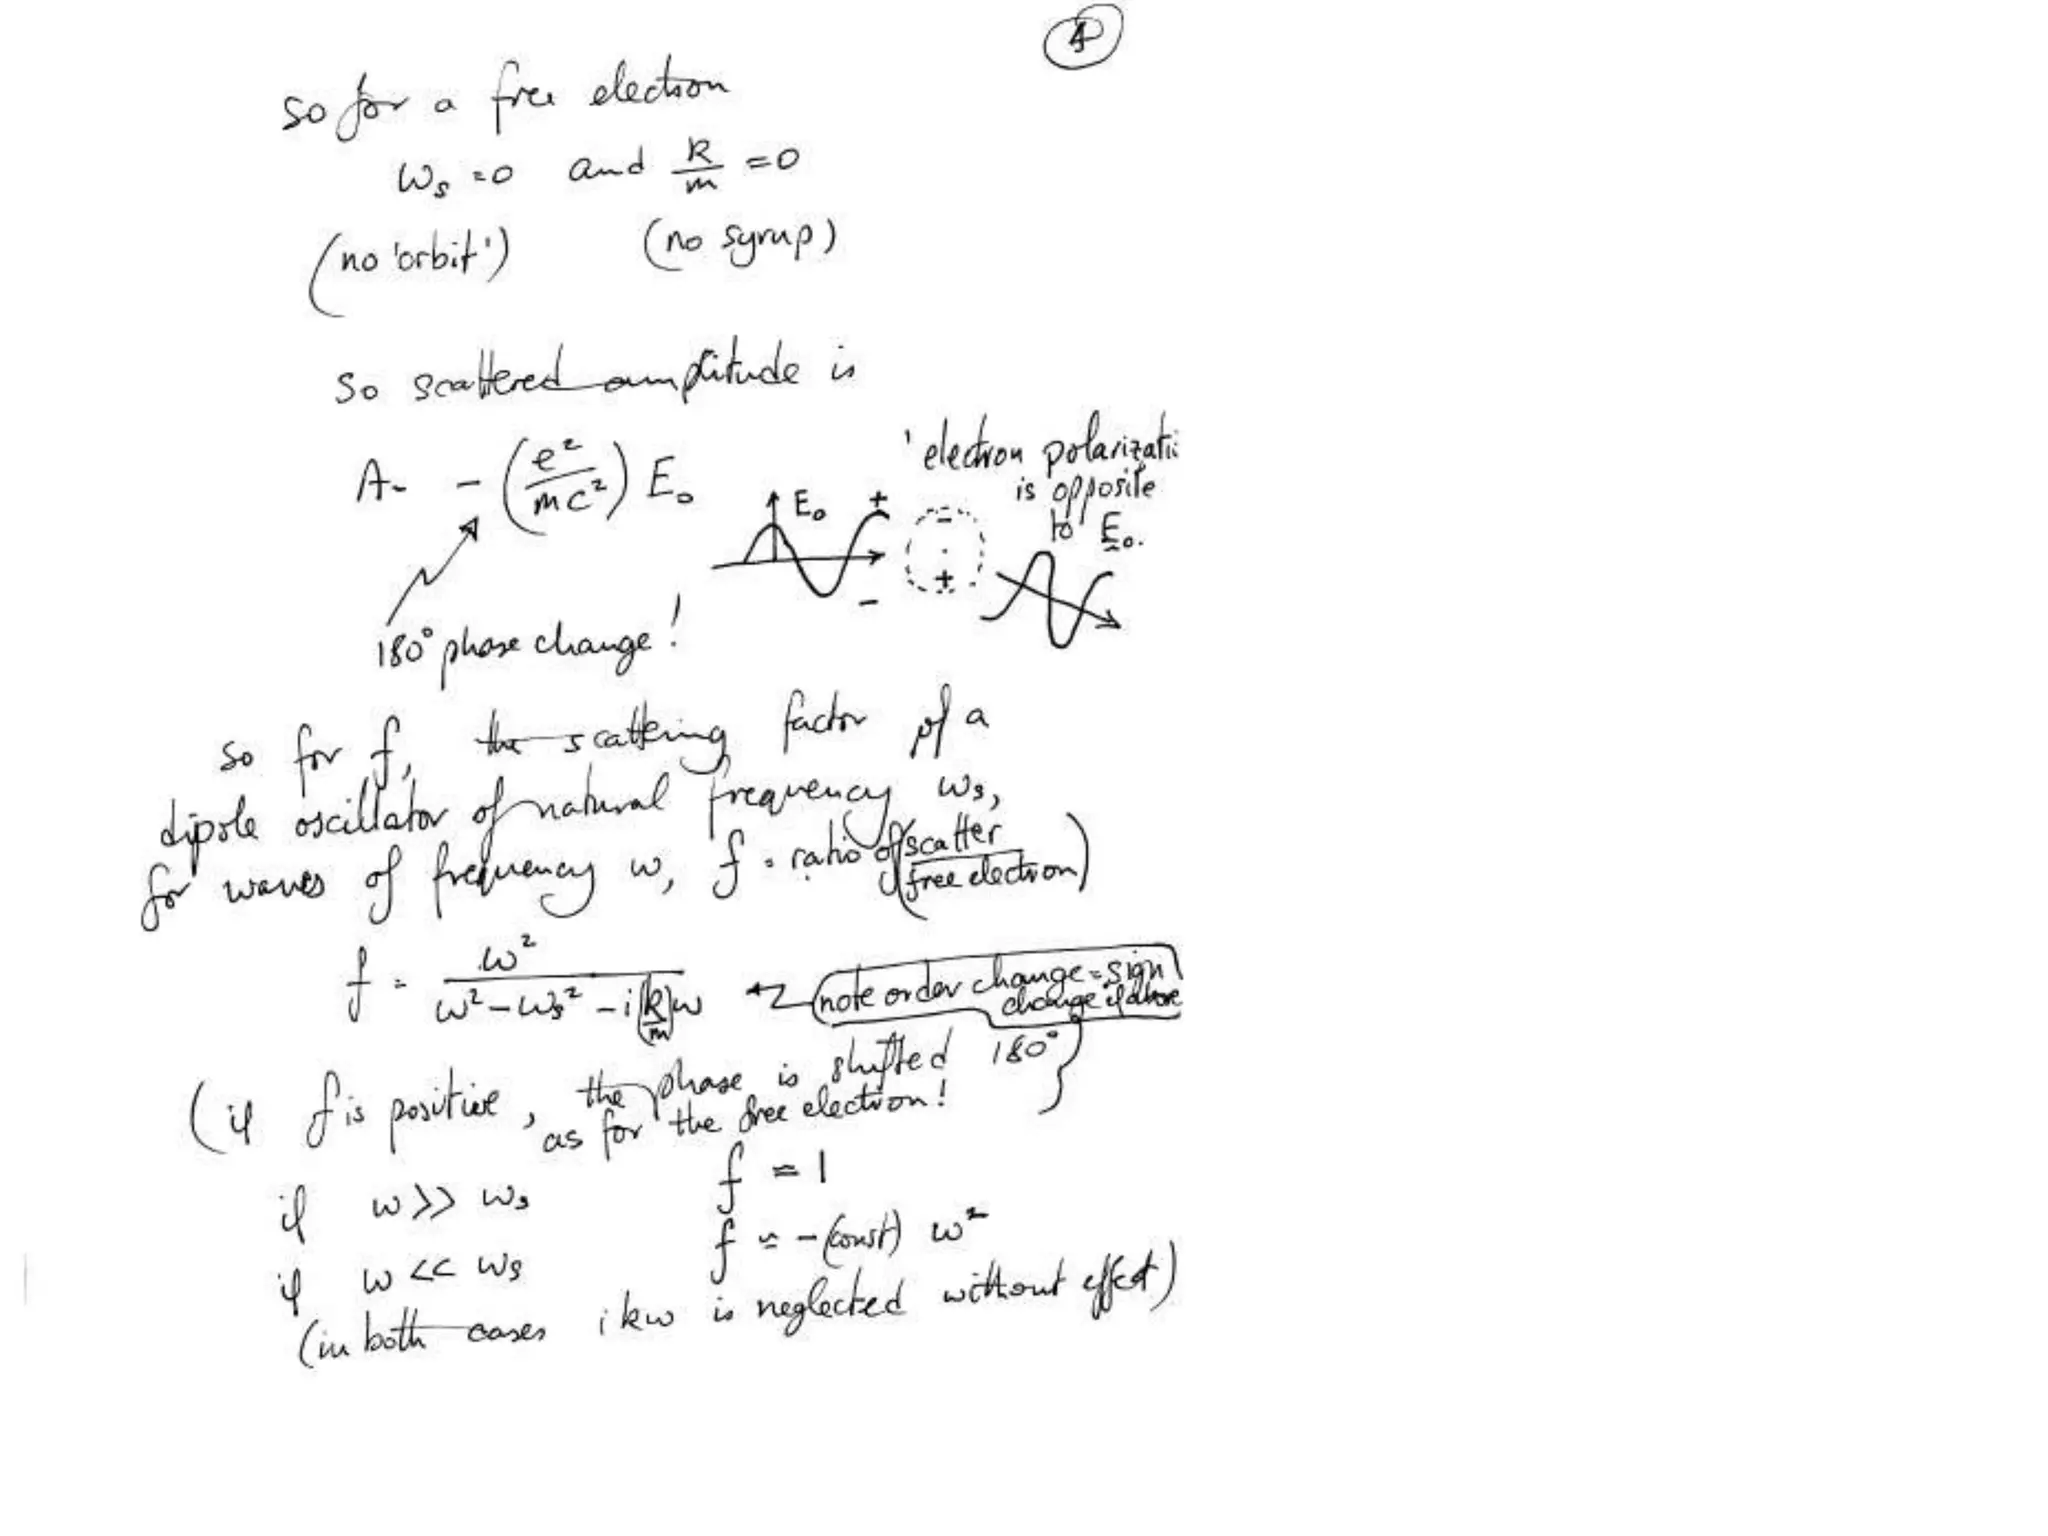 4
so for a free electron
ωs = 0 and k/m = 0
(no 'orbit') (no syrup)
so scattered amplitude is
A = - (e²/mc²) E₀
'electron polarizati
is opposite
to E₀.
E₀ + - + -
180° phase change!
so for f, the scattering factor of a
dipole oscillator of natural frequency ωs,
for waves of frequency ω, f = ratio of (scatter/free electron)
f = ω² / (ω² - ωs² - i(k/m)ω
note order change = sign
change of above
(if f is positive, the phase is shifted 180°
as for the free electron! }
if ω >> ωs f = 1
if ω << ωs f ≈ -(const) ω²
(in both cases ikω is neglected without effect)